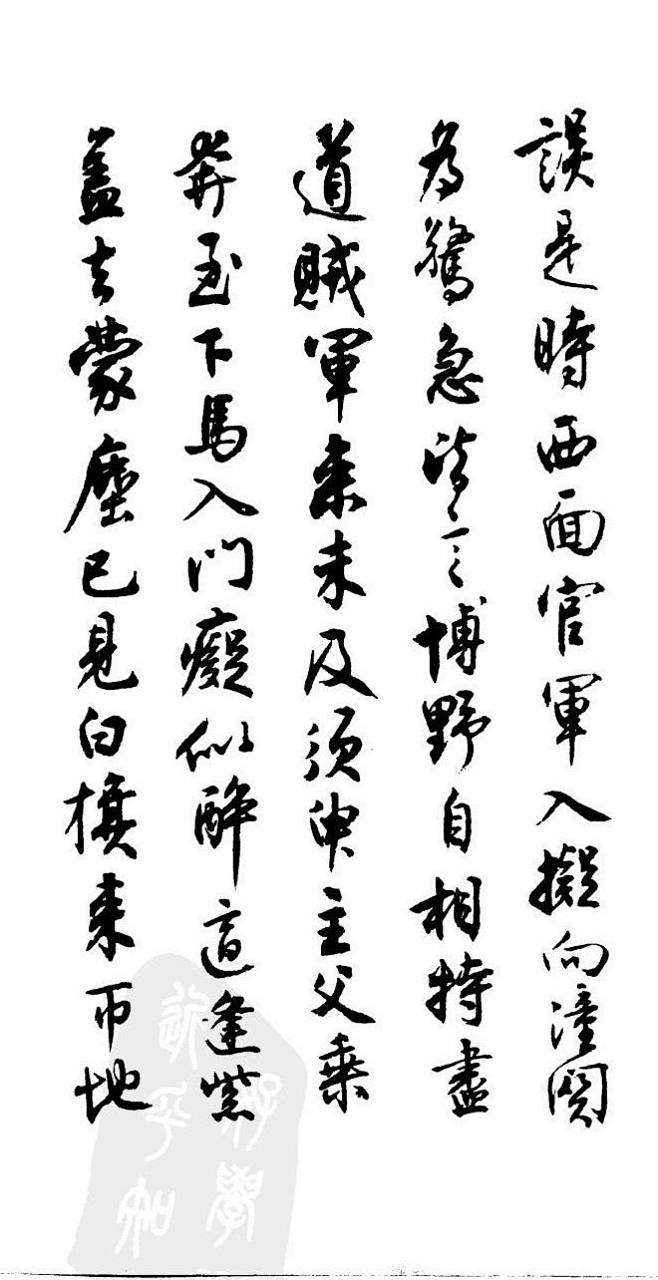 誤是時西面官軍入擬向潼關
為驚急皆言博野自相持盡
道賊軍来未及須臾主父乘
奔至下馬入門癡似醉適逢紫
蓋去蒙塵已見白旗来匝地